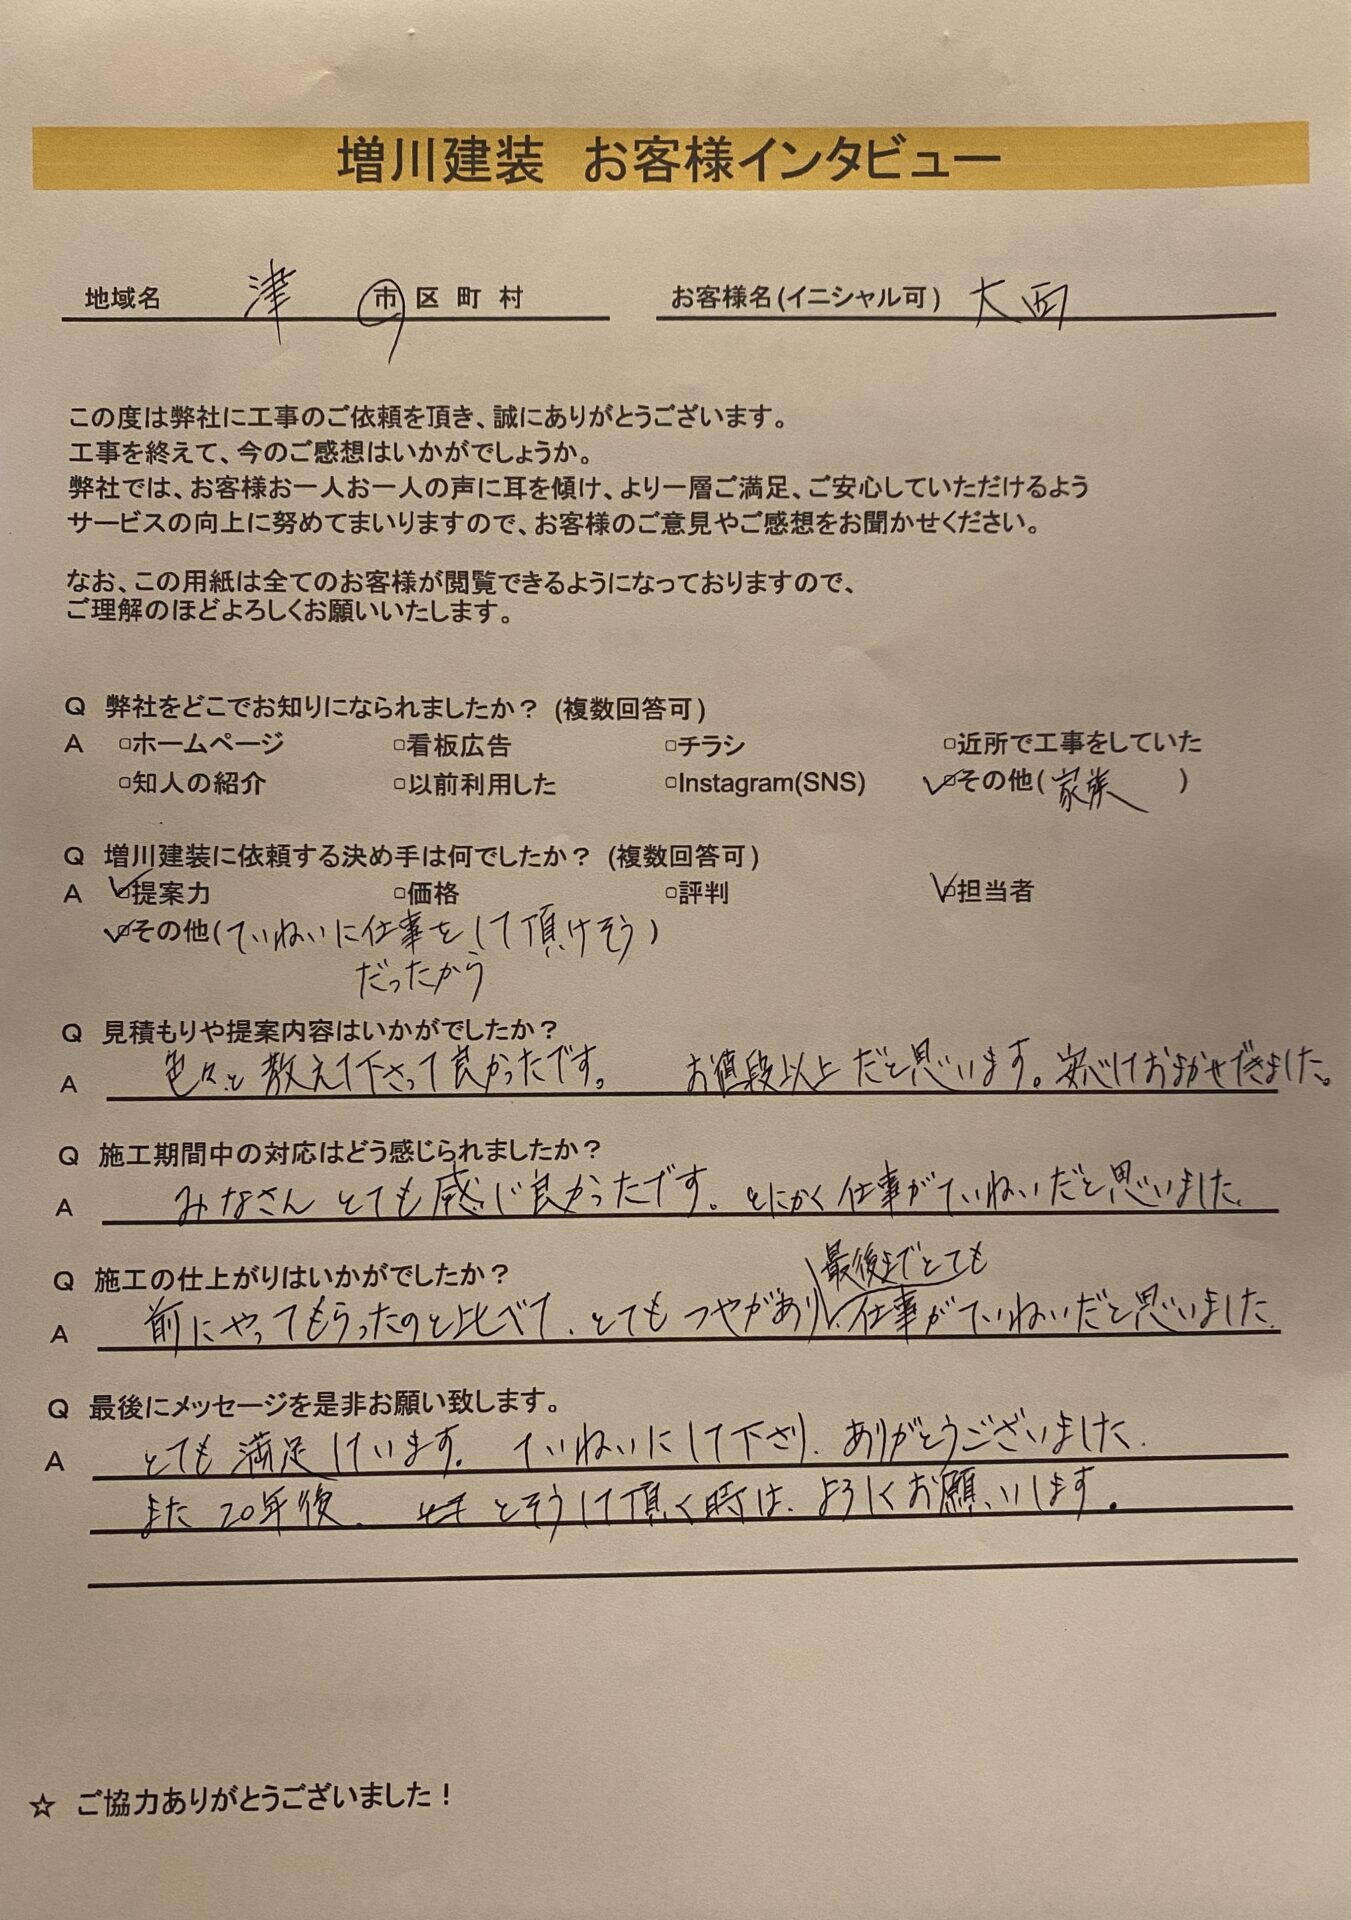 増川建装　お客様インタビュー
地域名　津　市 区 町 村　お客様名(イニシャル可)　大西
この度は弊社に工事のご依頼を頂き、誠にありがとうございます。
工事を終えて、今のご感想はいかがでしょうか。
弊社では、お客様お一人お一人の声に耳を傾け、より一層ご満足、ご安心していただけるよう
サービスの向上に努めてまいりますので、お客様のご意見やご感想をお聞かせください。
なお、この用紙は全てのお客様が閲覧できるようになっておりますので、
ご理解のほどよろしくお願いいたします。
Q 弊社をどこでお知りになられましたか？ (複数回答可)
A □ホームページ □看板広告 □チラシ □近所で工事をしていた
□知人の紹介 □以前利用した □Instagram(SNS) ☑その他( 家族 )
Q 増川建装に依頼する決め手は何でしたか？ (複数回答可)
A ☑提案力 □価格 □評判 ☑担当者
☑その他(ていねいに仕事をして頂けそう)
だったから
Q 見積もりや提案内容はいかがでしたか？
A 色々と教えて下さって良かったです。 お値段以上だと思います。安心しておまかせできました。
Q 施工期間中の対応はどう感じられましたか？
A みなさんとても感じ良かったです。とにかく仕事がていねいだと思いました。
Q 施工の仕上がりはいかがでしたか？
最後までとても
A 前にやってもらったのと比べて、とてもつやがあり、仕事がていねいだと思いました。
Q 最後にメッセージを是非お願い致します。
A とても満足しています。ていねいにして下さり、ありがとうございました。
また20年後、とそうして頂く時は、よろしくお願いします。
☆ ご協力ありがとうございました！